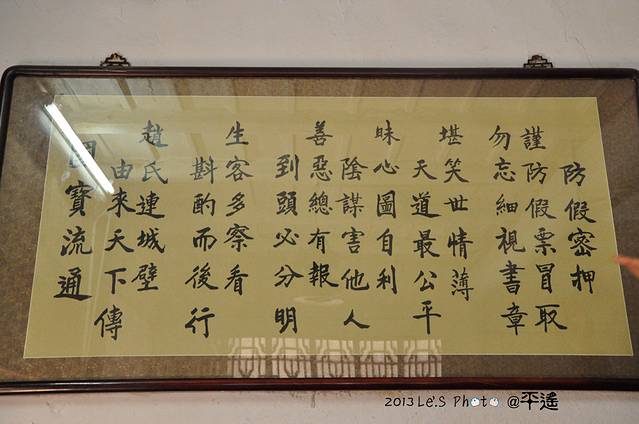 防假密押
謹防假票冒取
勿忘細視書章
堪笑世情薄
天道最公平
昧心圖自利
陰謀害他人
善惡總有報
到頭必分明
生客多察看
斟酌而後行
趙氏連城壁
由來天下傳
國寶流通
2013 Le's Photo @平遙